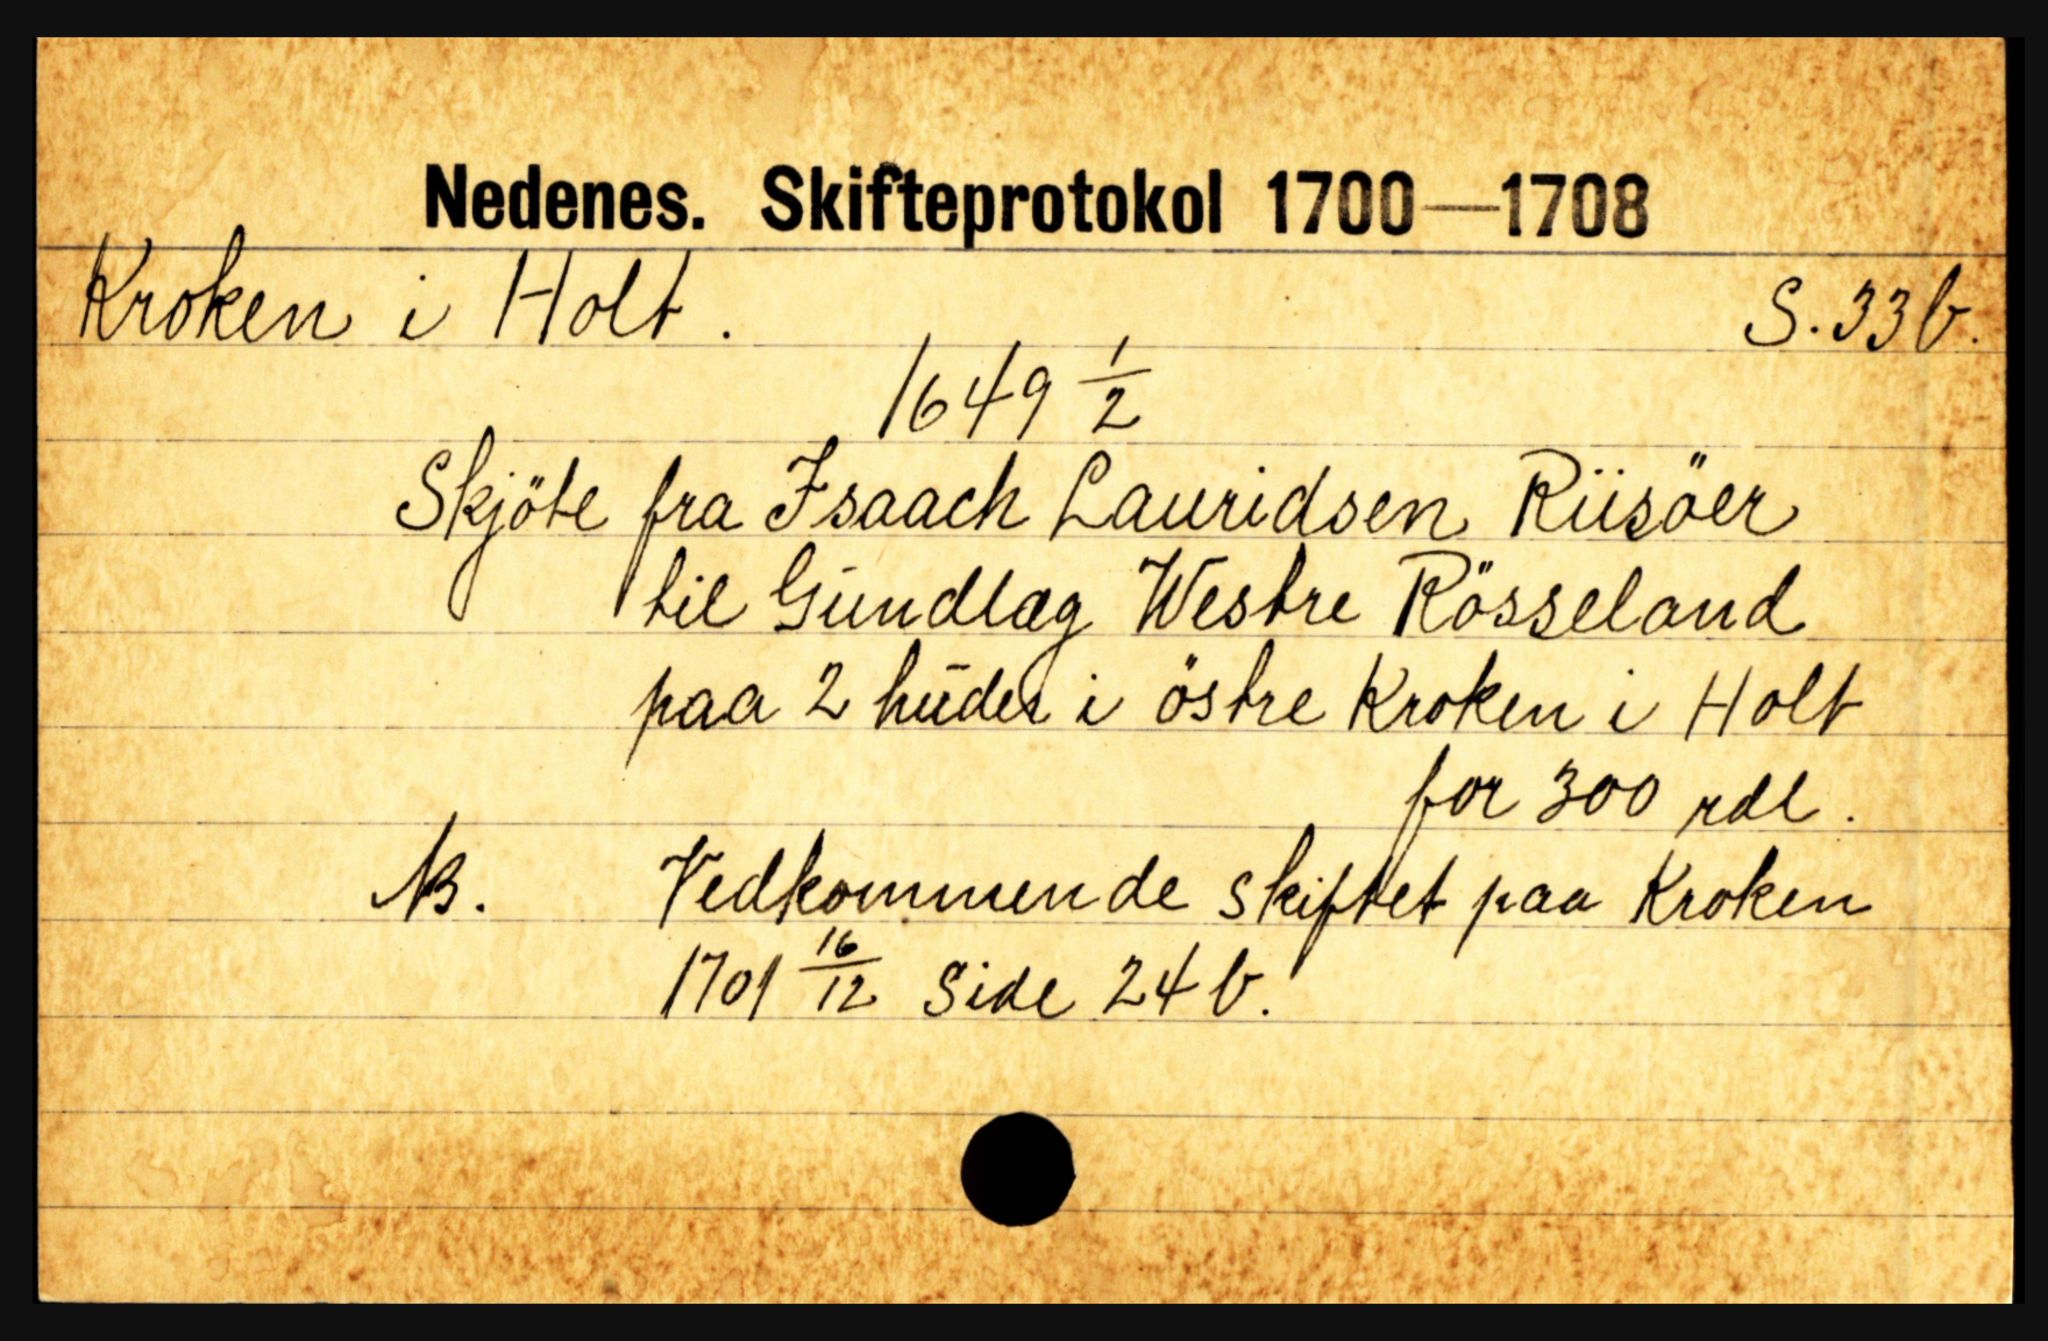 Nedenes. Skifteprotokol 1700—1708
Kroken i Holt. S. 33b.
1649 1/2
Skjöte fra Isaach Lauridsen Riisöer
til Gundlæg Westre Rösseland
paa 2 huder i östre Kroken i Holt
for 300 rdl.
NB. Vedkommende skiftet paa Kroken
1701 16/12 Side 24 b.